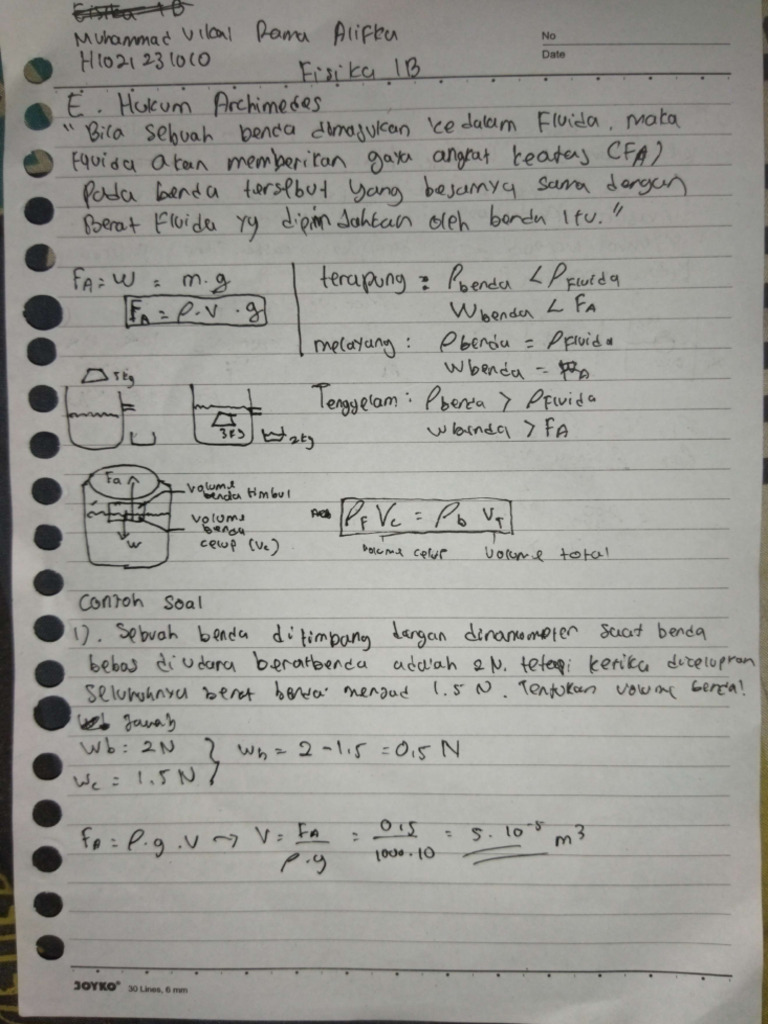 Fisika 1B
Muhammad Vikal Rama Alifka
No
H1021231010
Date
Fisika 1B
E. Hukum Archimedes
"Bila sebuah benda dimasukan kedalam Fluida, maka
Fluida akan memberikan gaya angkat keatas (FA)
Pada benda tersebut yang besarnya sama dengan
Berat Fluida yg dipindahkan oleh benda itu."
FA = W = m.g
FA = ρ.V.g
terapung : ρbenda < ρFluida
Wbenda < FA
melayang : ρbenda = ρFluida
Wbenda = FA
Tenggelam : ρbenda > ρFluida
Wbenda > FA
5kg
3kg
2kg
Fa
W
volume benda timbul
volume benda celup (Vc)
ρF Vc = ρb VT
volume celup volume total
Contoh Soal
1). Sebuah benda ditimbang dengan dinamometer saat benda
bebas diudara beratbenda adalah 2N. tetapi ketika dicelupkan
seluruhnya berat benda menjadi 1.5 N. Tentukan volume benda!
Jawab
Wb = 2N
Wc = 1.5 N
= 2 - 1.5 = 0.5 N
FA = ρ.g.V → V = FA / ρ.g = 0.5 / 1000.10 = 5.10⁻⁵ m³
JOYKO 30 Lines, 6 mm